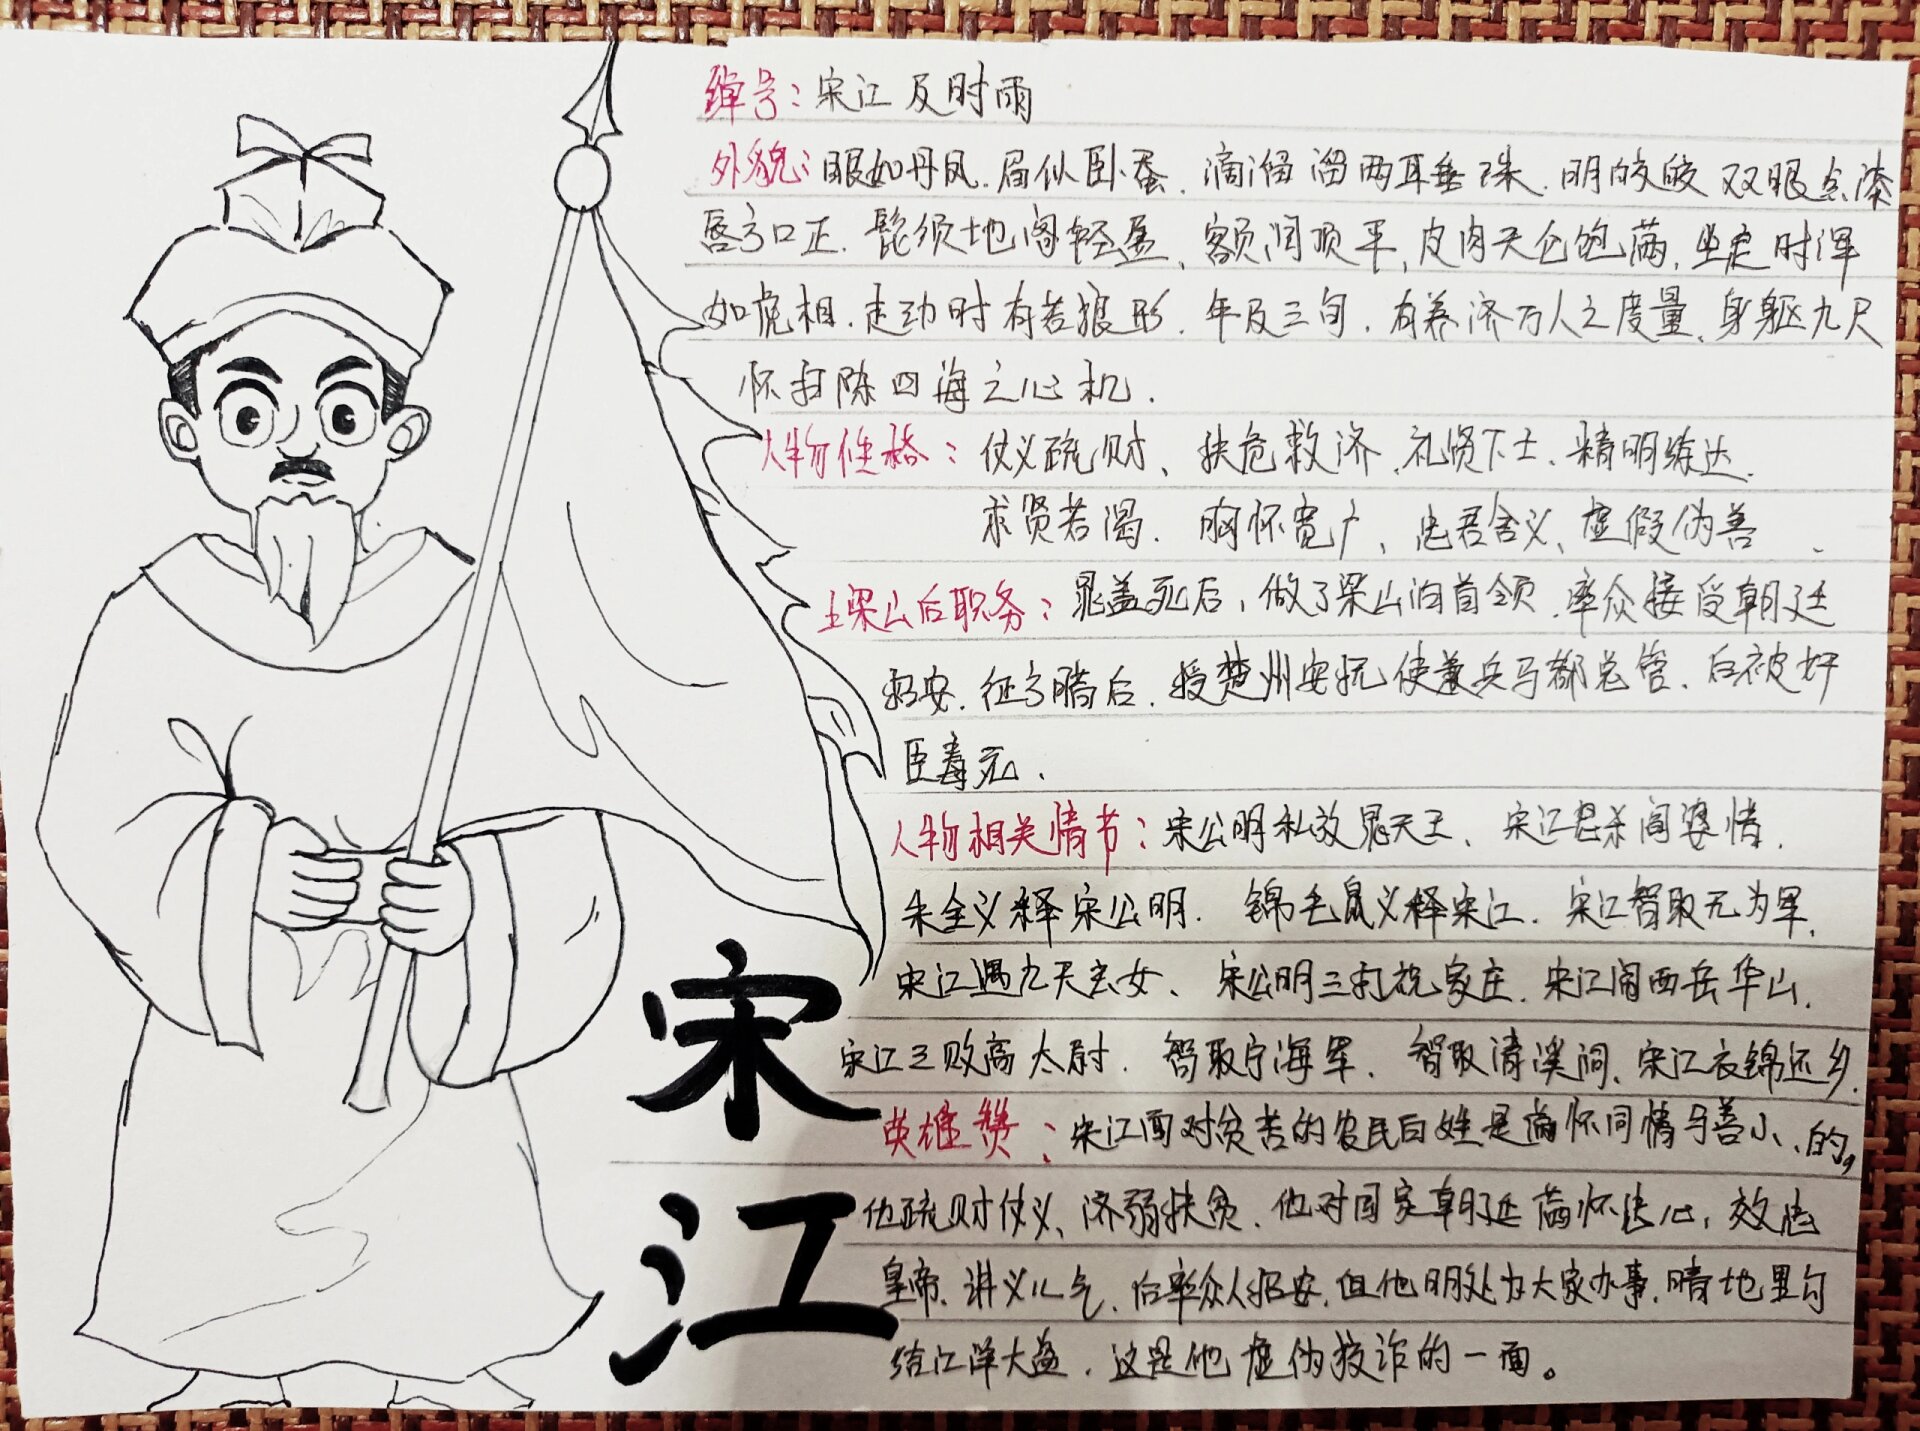 绰号：宋江 及时雨
外貌：眼如丹凤、眉似卧蚕、滴溜溜两耳垂珠、明皎皎双眼点漆
唇方口正、髭须地阁轻盈、额阔顶平、皮肉天仓饱满、坐定时浑
如虎相、走动时有若狼形、年及三旬、有养济万人之度量、身躯九尺
怀扫除四海之心机、
人物性格：仗义疏财、扶危救济、礼贤下士、精明练达、
求贤若渴、胸怀宽广、忠君舍义、虚假伪善、
上梁山后职务：晁盖死后，做了梁山泊首领、率众接受朝廷
招安、征方腊后、授楚州安抚使兼兵马都总管、后被奸
臣毒死、
人物相关情节：宋公明私放晁天王、宋江怒杀阎婆惜、
朱仝义释宋公明、锦毛鼠义释宋江、宋江智取无为军、
宋江遇九天玄女、宋公明三打祝家庄、宋江闹西岳华山、
宋江三败高太尉、智取宁海军、智取清溪洞、宋江衣锦还乡、
英雄赞：宋江面对贫苦的农民百姓是满怀同情与善心的，
他疏财仗义、济弱扶贫、他对国家朝廷满怀忠心，效忠
皇帝、讲义气、后率众人招安、但他明处为大家办事、暗地里勾
结江洋大盗、这是他虚伪狡诈的一面。
宋
江